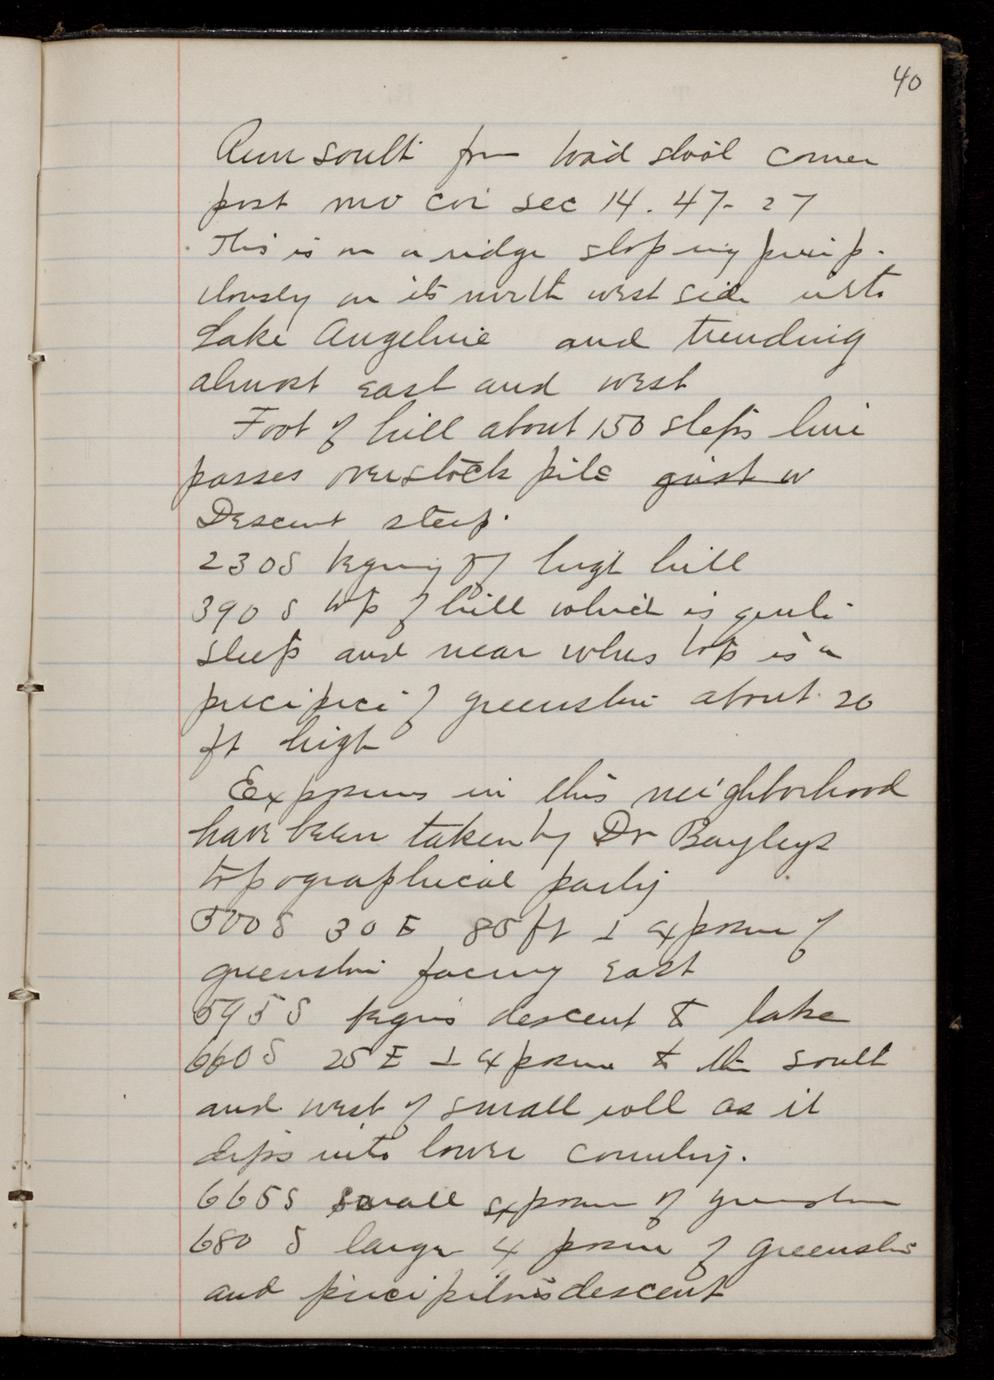 40
Run south from wood stool corner
post nw cor sec 14. 47- 27
This is on a ridge sloping precip-
itously on its north west side into
Lake Angeline and trending
almost east and west
Foot of hill about 150 steps line
passes over stock pile
Descent steep.
230 S begining of high hill
390 S top of hill which is quite
steep and near whos top is a
precipice of greenstone about 20
ft high
Exposures in this neighborhood
have been taken by Dr Bayleys
topographical party
500 S 30 E 85 ft ⊥ exposure of
greenstone facing east
595 S begins descent to lake
660 S 25 E ⊥ exposure to the south
and west of small roll as it
dips into lower country.
665 S small exposure of greenstone
680 S larger exposure of greenstone
and precipitous descent